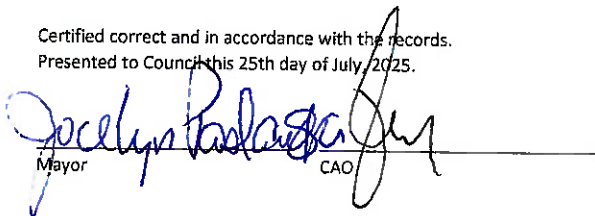 Certified correct and in accordance with the records.
Presented to Council this 25th day of July, 2025.
Jocelyn
Mayor
CAO